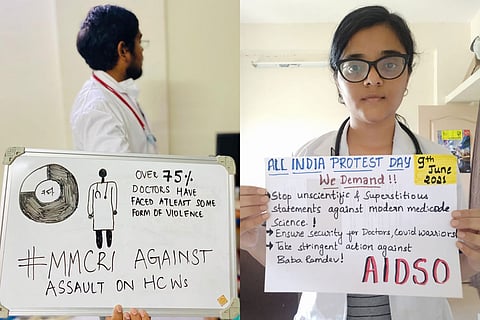 75%
OVER 75%
DOCTORS HAVE
FACED ATLEAST SOME
FORM OF VIOLENCE
#MMCRI AGAINST
ASSAULT ON HCWs
ALL INDIA PROTEST DAY
9th
June
2021
We Demand !!
Stop unscientific & Superstitious
statements against modern medicode
Science !
Ensure security for Doctors, Covid warriors!
Take stringent action against
Baba Ramdev!
AIDSO